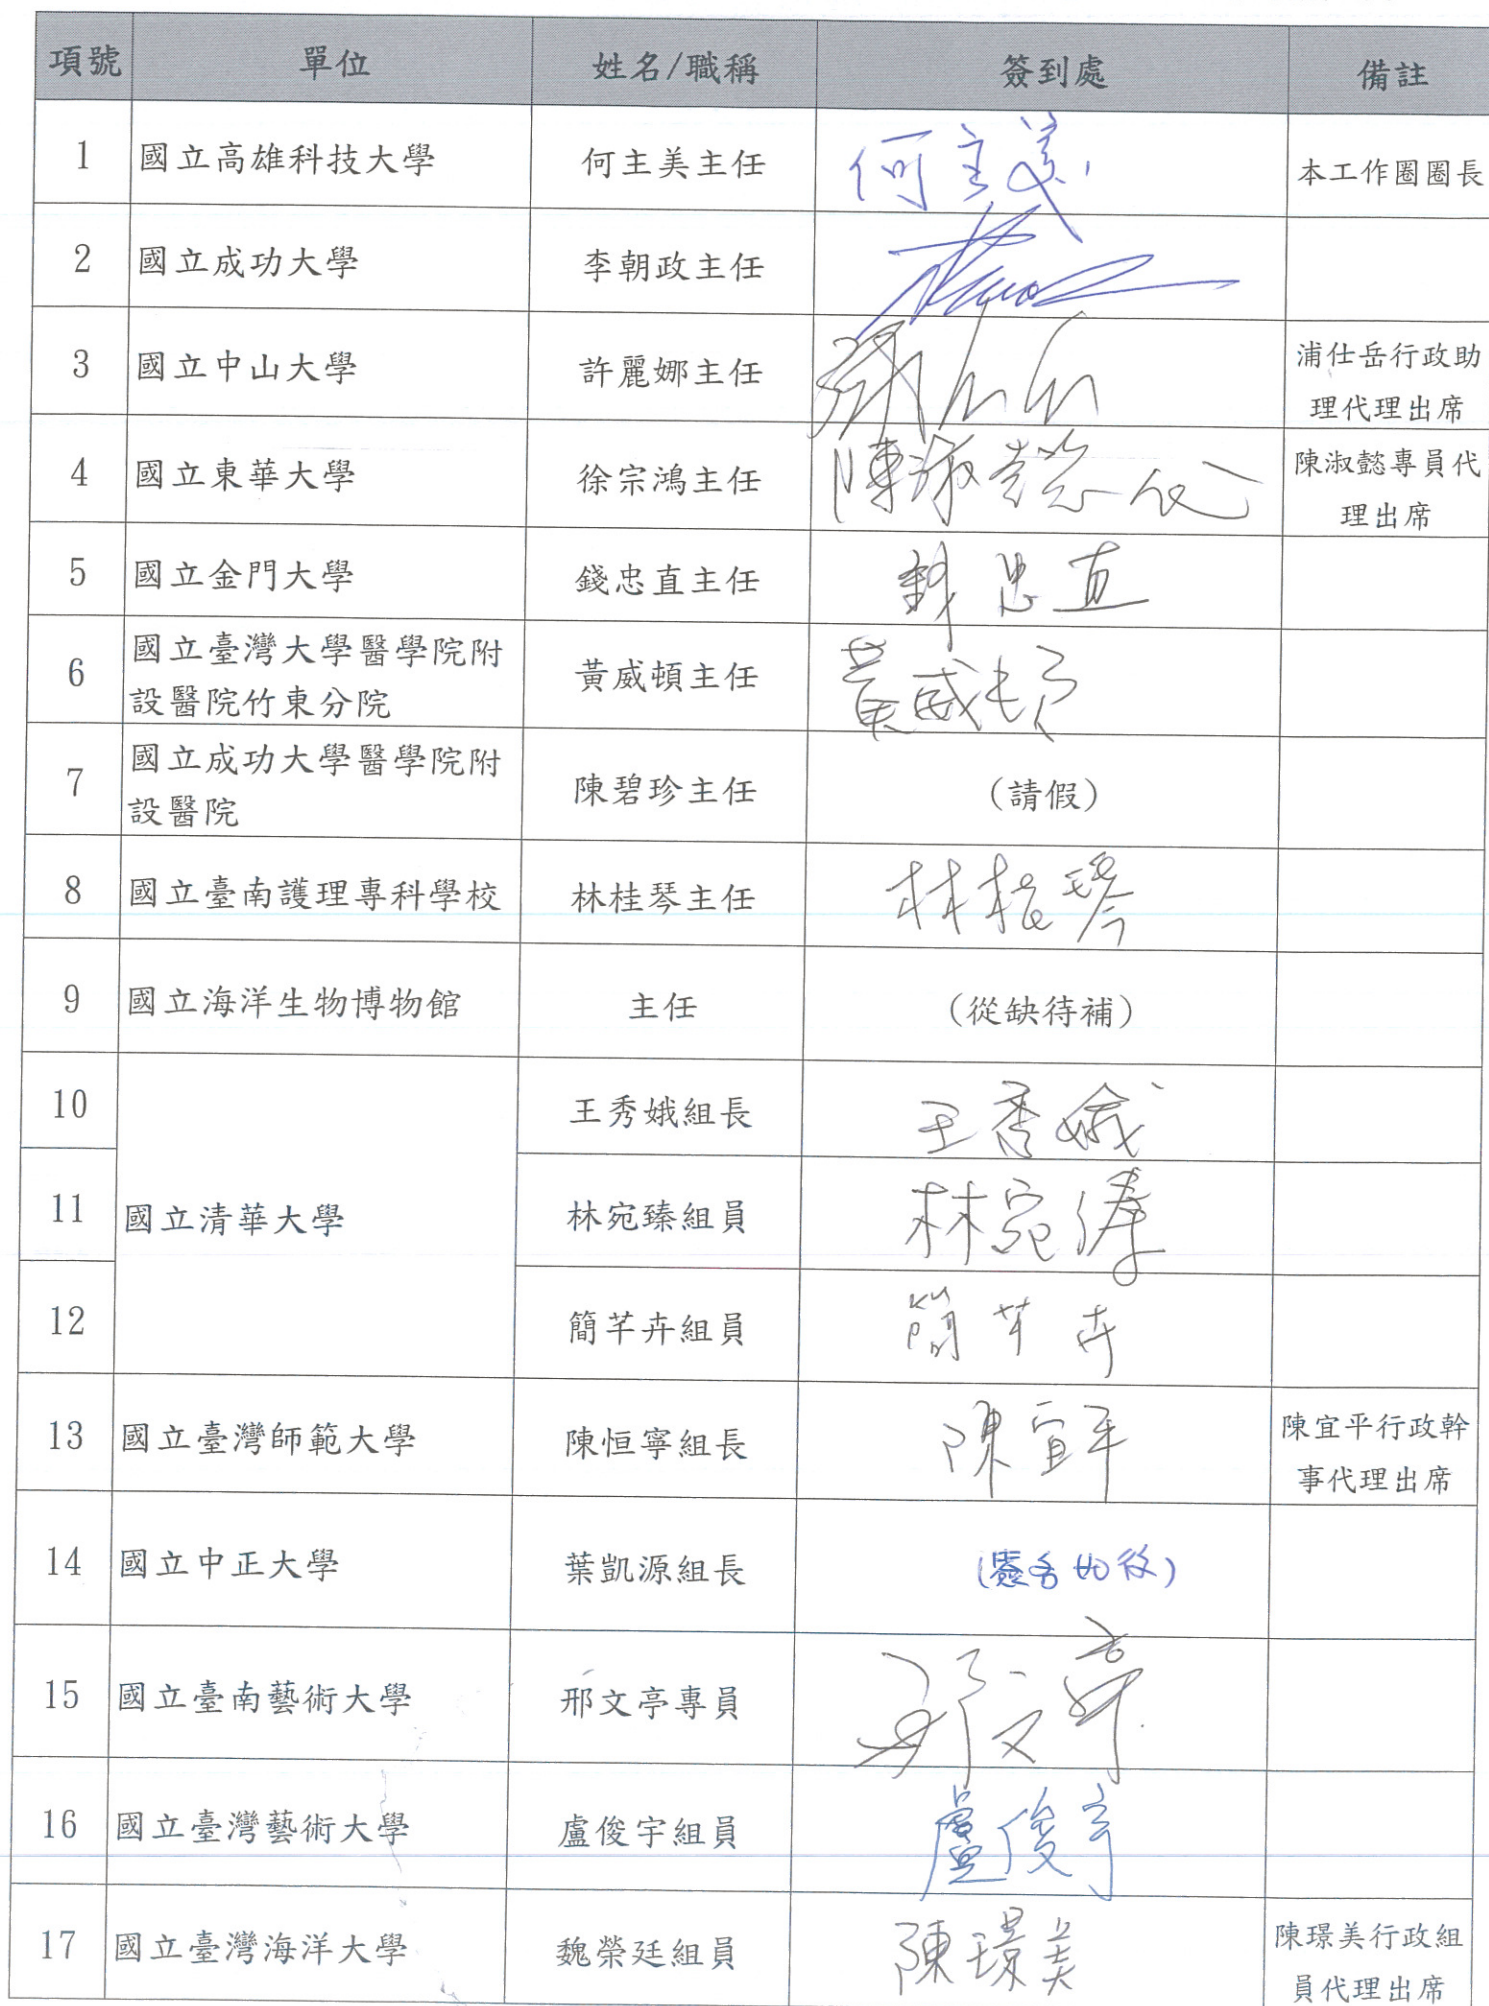 項號 單位 姓名/職稱 簽到處 備註
1 國立高雄科技大學 何主美主任 何主美 本工作圈圈長
2 國立成功大學 李朝政主任
3 國立中山大學 許麗娜主任 浦仕岳行政助
理代理出席
4 國立東華大學 徐宗鴻主任 陳淑懿代 陳淑懿專員代
理出席
5 國立金門大學 錢忠直主任 錢忠直
6 國立臺灣大學醫學院附
設醫院竹東分院 黃威頓主任 黃威頓
7 國立成功大學醫學院附
設醫院 陳碧珍主任 (請假)
8 國立臺南護理專科學校 林桂琴主任 林桂琴
9 國立海洋生物博物館 主任 (從缺待補)
10 王秀娥組長 王秀娥
11 國立清華大學 林宛臻組員 林宛臻
12 簡芊卉組員 簡芊卉
13 國立臺灣師範大學 陳恒寧組長 陳宜平 陳宜平行政幹
事代理出席
14 國立中正大學 葉凱源組長 (簽名如後)
15 國立臺南藝術大學 邢文亭專員 邢文亭
16 國立臺灣藝術大學 盧俊宇組員 盧俊宇
17 國立臺灣海洋大學 魏榮廷組員 陳璟美 陳璟美行政組
員代理出席